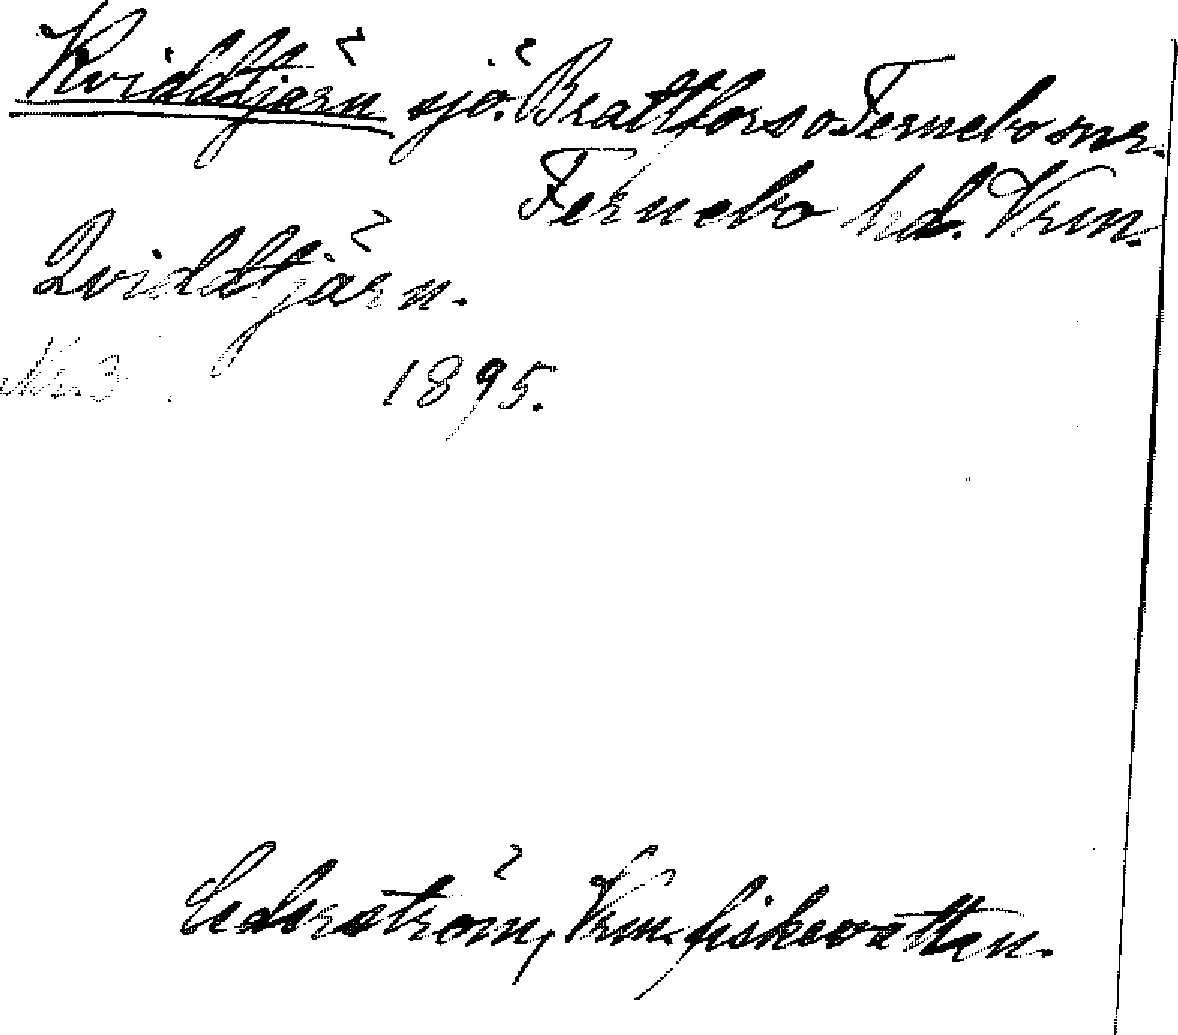 Kviddtjärn sjö. Brattfors o. Fernebo snr.
Fernebo hd. Vrm.
Qviddtjärn.
Nr. 3 1895.
Cederström, Vrm. fiskevatten.